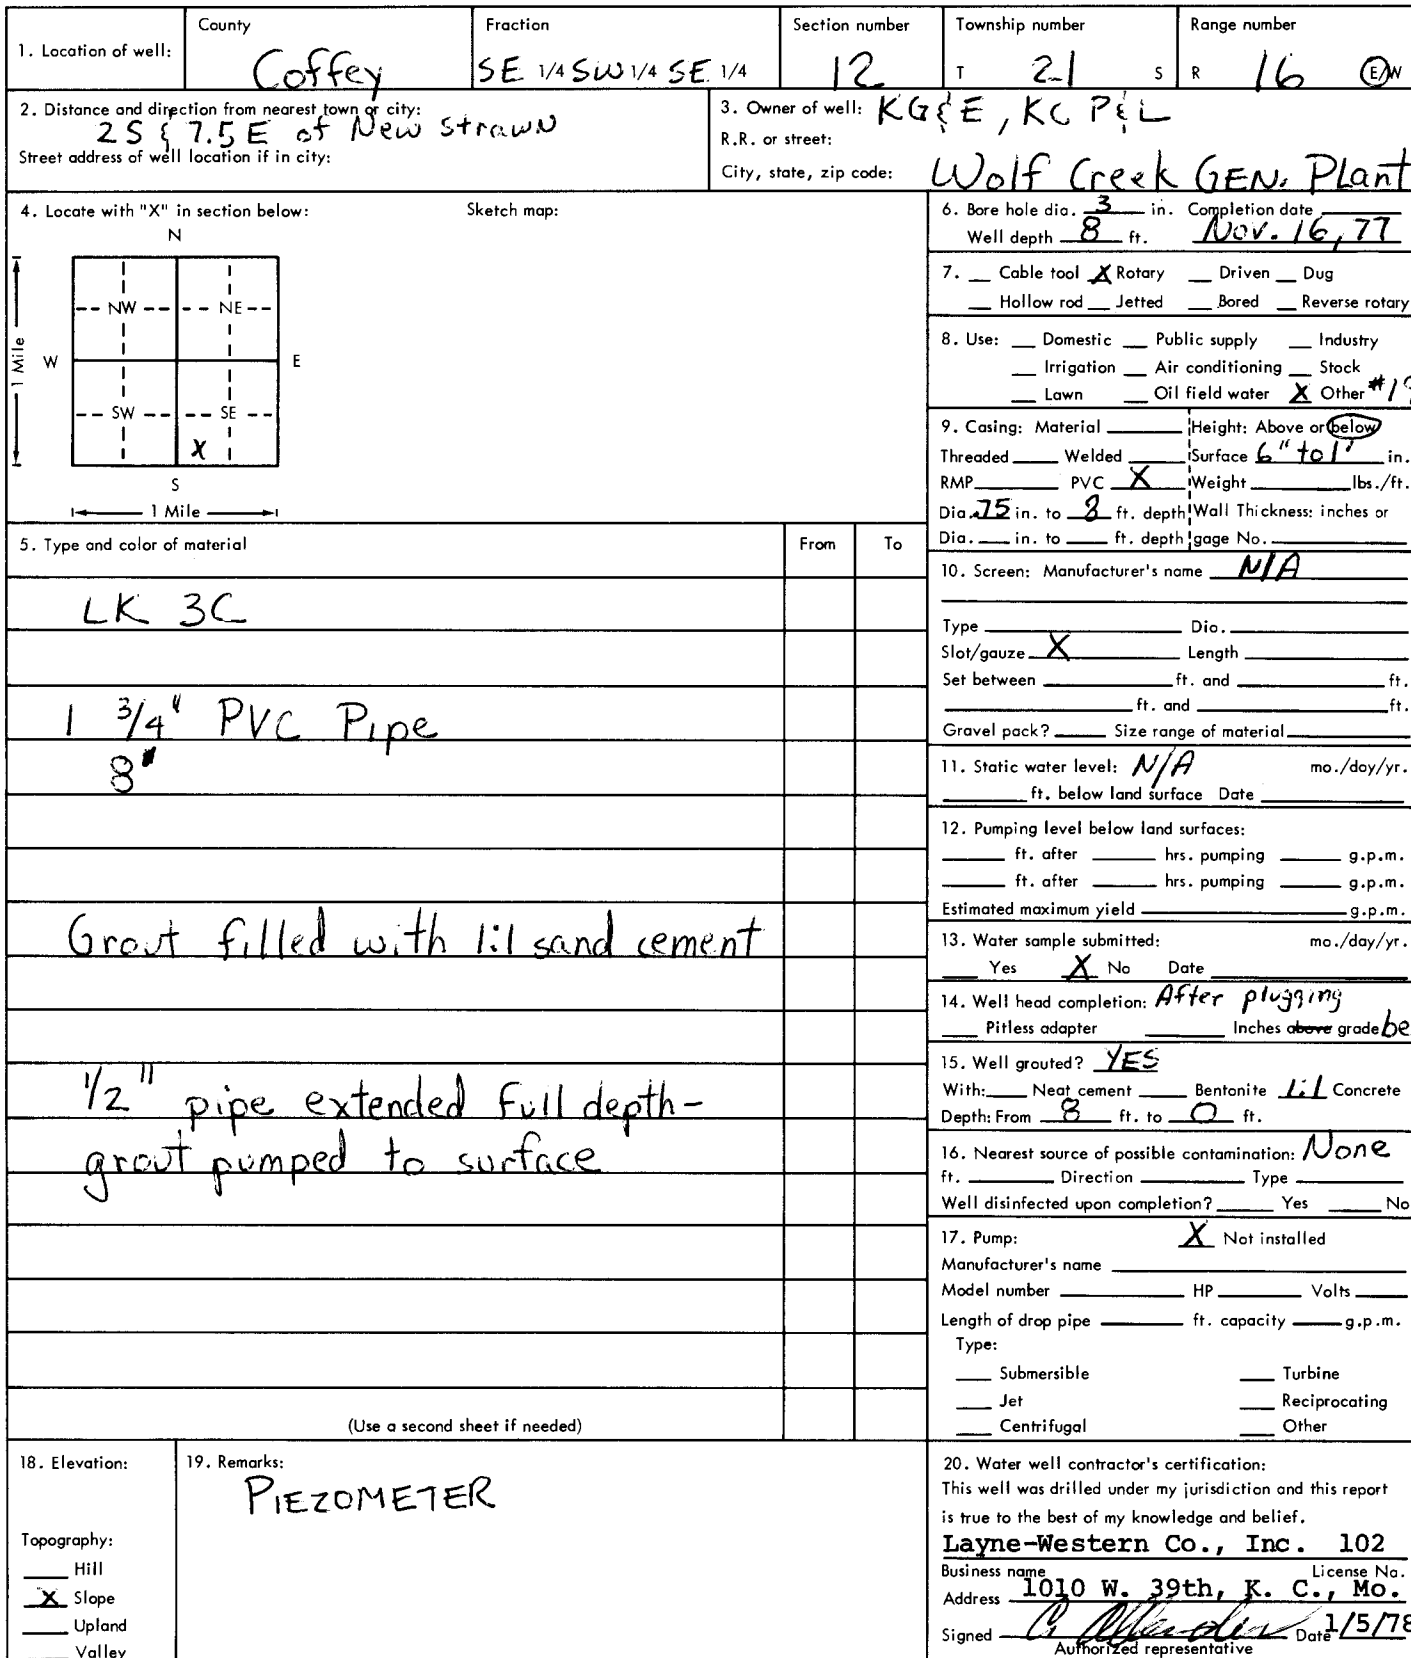 1. Location of well: County Coffey Fraction SE 1/4 SW 1/4 SE 1/4 Section number 12 Township number T 21 S Range number R 16 E/W
2. Distance and direction from nearest town or city:
2 S & 7.5 E of New Strawn
Street address of well location if in city:
3. Owner of well: KG&E, KC P&L
R.R. or street:
City, state, zip code: Wolf Creek GEN. Plant
4. Locate with "X" in section below: Sketch map:
N
NW NE
W E
1 Mile
SW SE
X
S
1 Mile
5. Type and color of material From To
LK 3C
1 3/4" PVC Pipe
8'
Grout filled with 1:1 sand cement
1/2" pipe extended full depth-
grout pumped to surface
(Use a second sheet if needed)
6. Bore hole dia. 3 in. Completion date
Well depth 8 ft. Nov. 16, 77
7. Cable tool X Rotary Driven Dug
Hollow rod Jetted Bored Reverse rotary
8. Use: Domestic Public supply Industry
Irrigation Air conditioning Stock
Lawn Oil field water X Other
9. Casing: Material Height: Above or below
Threaded Welded Surface 6" to 1' in.
RMP PVC X Weight lbs./ft.
Dia. .75 in. to 8 ft. depth Wall Thickness: inches or
Dia. in. to ft. depth gage No.
10. Screen: Manufacturer's name N/A
Type Dia.
Slot/gauze X Length
Set between ft. and ft.
ft. and ft.
Gravel pack? Size range of material
11. Static water level: N/A mo./day/yr.
ft. below land surface Date
12. Pumping level below land surfaces:
ft. after hrs. pumping g.p.m.
ft. after hrs. pumping g.p.m.
Estimated maximum yield g.p.m.
13. Water sample submitted: mo./day/yr.
Yes X No Date
14. Well head completion: After plugging
Pitless adapter Inches above grade be
15. Well grouted? YES
With: Neat cement Bentonite 1:1 Concrete
Depth: From 8 ft. to 0 ft.
16. Nearest source of possible contamination: None
ft. Direction Type
Well disinfected upon completion? Yes No
17. Pump: X Not installed
Manufacturer's name
Model number HP Volts
Length of drop pipe ft. capacity g.p.m.
Type:
Submersible Turbine
Jet Reciprocating
Centrifugal Other
18. Elevation:
Topography:
Hill
X Slope
Upland
Valley
19. Remarks:
PIEZOMETER
20. Water well contractor's certification:
This well was drilled under my jurisdiction and this report
is true to the best of my knowledge and belief.
Layne-Western Co., Inc. 102
Business name License No.
Address 1010 W. 39th, K. C., Mo.
Signed Date 1/5/78
Authorized representative